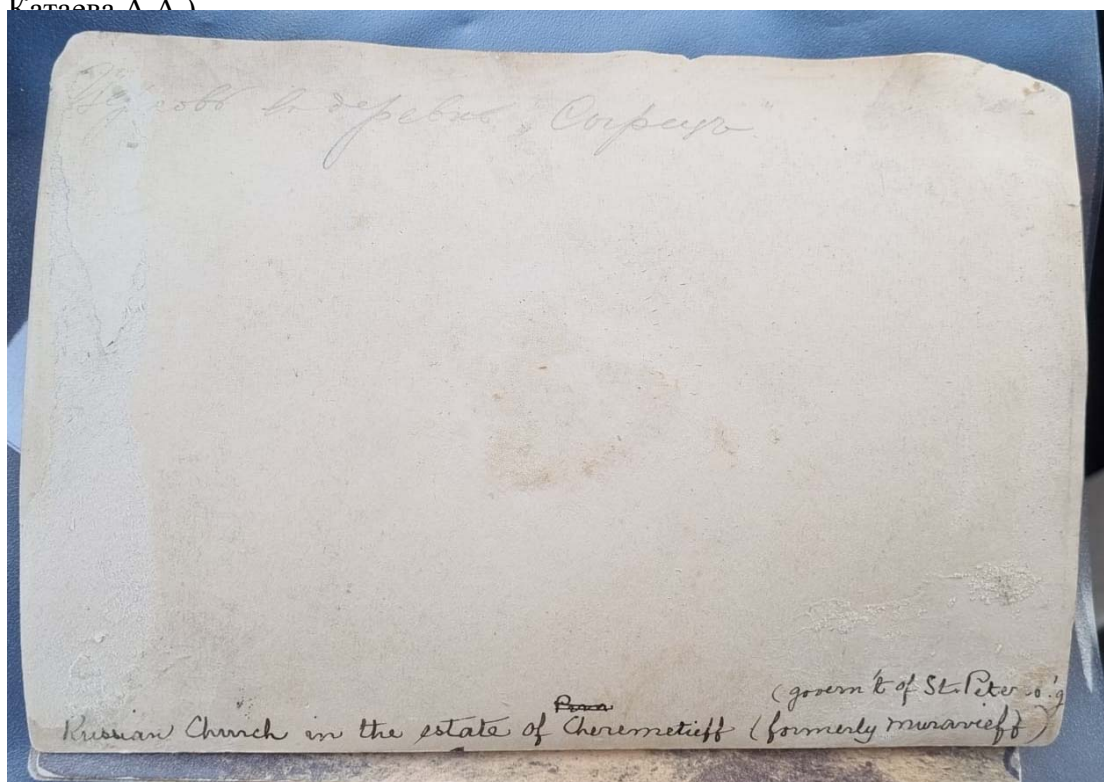 Катаева А.А.)
Церковь въ деревнѣ Сырецъ
(govern't of St. Petersb'g
Russian Church in the estate of Cheremetieff (formerly Muravieff)